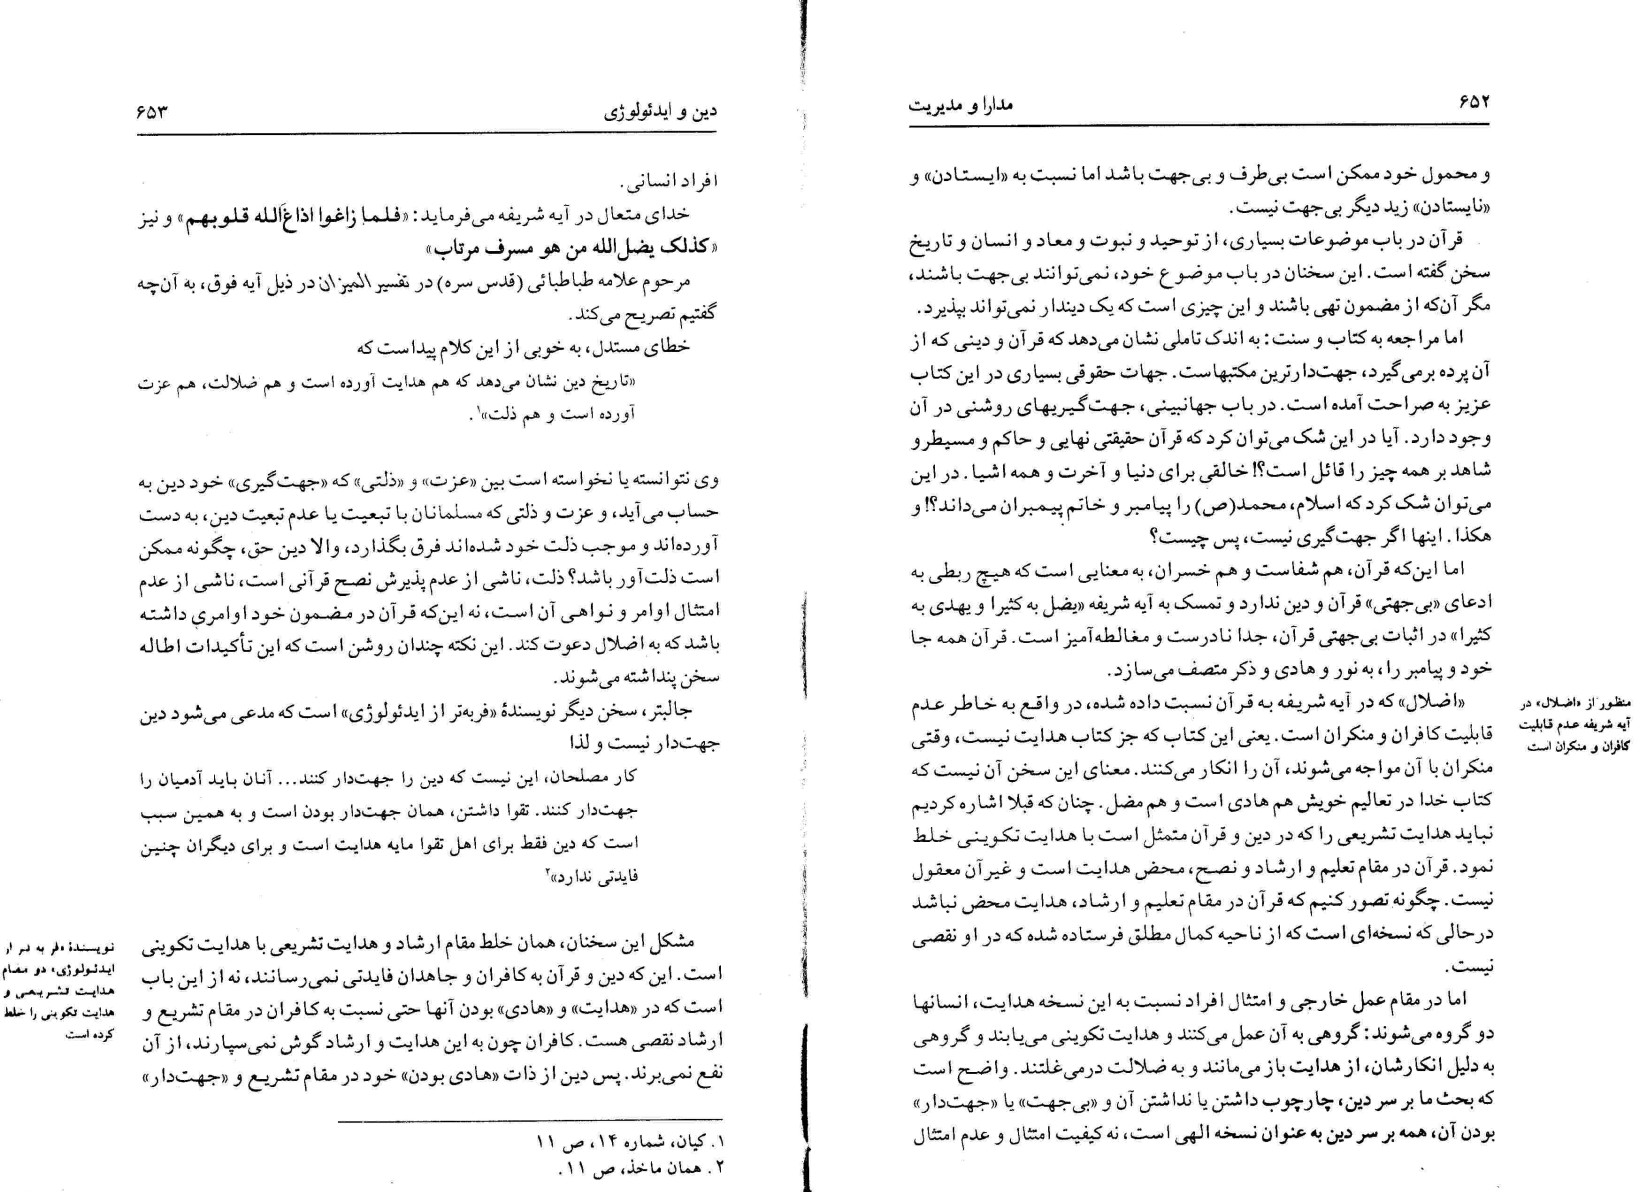 ۶۵۲
مدارا و مدیریت
و محمول خود ممکن است بی‌طرف و بی‌جهت باشد اما نسبت به «ایستادن» و
«نایستادن» زید دیگر بی‌جهت نیست.
قرآن در باب موضوعات بسیاری، از توحید و نبوت و معاد و انسان و تاریخ
سخن گفته است. این سخنان در باب موضوع خود، نمی‌توانند بی‌جهت باشند،
مگر آن‌که از مضمون تهی باشند و این چیزی است که یک دیندار نمی‌تواند بپذیرد.
اما مراجعه به کتاب و سنت: به اندک تاملی نشان می‌دهد که قرآن و دینی که از
آن پرده برمی‌گیرد، جهت‌دارترین مکتبهاست. جهات حقوقی بسیاری در این کتاب
عزیز به صراحت آمده است. در باب جهانبینی، جهت‌گیریهای روشنی در آن
وجود دارد. آیا در این شک می‌توان کرد که قرآن حقیقتی نهایی و حاکم و مسیطر و
شاهد بر همه چیز را قائل است؟! خالقی برای دنیا و آخرت و همه اشیا. در این
می‌توان شک کرد که اسلام، محمد(ص) را پیامبر و خاتم پیمبران می‌داند؟! و
هکذا. اینها اگر جهت‌گیری نیست، پس چیست؟
اما این‌که قرآن، هم شفاست و هم خسران، به معنایی است که هیچ ربطی به
ادعای «بی‌جهتی» قرآن و دین ندارد و تمسک به آیه شریفه «یضل به کثیرا و یهدی به
کثیرا» در اثبات بی‌جهتی قرآن، جدا نادرست و مغالطه‌آمیز است. قرآن همه جا
خود و پیامبر را، به نور و هادی و ذکر متصف می‌سازد.
«اضلال» که در آیه شریفه به قرآن نسبت داده شده، در واقع به خاطر عدم
قابلیت کافران و منکران است. یعنی این کتاب که جز کتاب هدایت نیست، وقتی
منکران با آن مواجه می‌شوند، آن را انکار می‌کنند. معنای این سخن آن نیست که
کتاب خدا در تعالیم خویش هم هادی است و هم مضل. چنان که قبلا اشاره کردیم
نباید هدایت تشریعی را که در دین و قرآن متمثل است با هدایت تکوینی خلط
نمود. قرآن در مقام تعلیم و ارشاد و نصح، محض هدایت است و غیر آن معقول
نیست. چگونه تصور کنیم که قرآن در مقام تعلیم و ارشاد، هدایت محض نباشد
درحالی که نسخه‌ای است که از ناحیه کمال مطلق فرستاده شده که در او نقصی
نیست.
اما در مقام عمل خارجی و امتثال افراد نسبت به این نسخه هدایت، انسانها
دو گروه می‌شوند: گروهی به آن عمل می‌کنند و هدایت تکوینی می‌یابند و گروهی
به دلیل انکارشان، از هدایت باز می‌مانند و به ضلالت درمی‌غلتند. واضح است
که بحث ما بر سر دین، چارچوب داشتن یا نداشتن آن و «بی‌جهت» یا «جهت‌دار»
بودن آن، همه بر سر دین به عنوان نسخه الهی است، نه کیفیت امتثال و عدم امتثال
منظور از «اضلال» در
آیه شریفه عدم قابلیت
کافران و منکران است
دین و ایدئولوژی
۶۵۳
افراد انسانی.
خدای متعال در آیه شریفه می‌فرماید: «فلما زاغوا اذاغ‌الله قلوبهم» و نیز
«کذلک یضل‌الله من هو مسرف مرتاب»
مرحوم علامه طباطبائی (قدس سره) در تفسیر المیزان در ذیل آیه فوق، به آن‌چه
گفتیم تصریح می‌کند.
خطای مستدل، به خوبی از این کلام پیداست که
«تاریخ دین نشان می‌دهد که هم هدایت آورده است و هم ضلالت، هم عزت
آورده است و هم ذلت»۱.
وی نتوانسته یا نخواسته است بین «عزت» و «ذلتی» که «جهت‌گیری» خود دین به
حساب می‌آید، و عزت و ذلتی که مسلمانان با تبعیت یا عدم تبعیت دین، به دست
آورده‌اند و موجب ذلت خود شده‌اند فرق بگذارد، والا دین حق، چگونه ممکن
است ذلت‌آور باشد؟ ذلت، ناشی از عدم پذیرش نصح قرآنی است، ناشی از عدم
امتثال اوامر و نواهی آن است، نه این‌که قرآن در مضمون خود اوامری داشته
باشد که به اضلال دعوت کند. این نکته چندان روشن است که این تأکیدات اطاله
سخن پنداشته می‌شوند.
جالبتر، سخن دیگر نویسندهٔ «فربه‌تر از ایدئولوژی» است که مدعی می‌شود دین
جهت‌دار نیست و لذا
کار مصلحان، این نیست که دین را جهت‌دار کنند... آنان باید آدمیان را
جهت‌دار کنند. تقوا داشتن، همان جهت‌دار بودن است و به همین سبب
است که دین فقط برای اهل تقوا مایه هدایت است و برای دیگران چنین
فایدتی ندارد»۲
مشکل این سخنان، همان خلط مقام ارشاد و هدایت تشریعی با هدایت تکوینی
است. این که دین و قرآن به کافران و جاهدان فایدتی نمی‌رسانند، نه از این باب
است که در «هدایت» و «هادی» بودن آنها حتی نسبت به کافران در مقام تشریع و
ارشاد نقصی هست. کافران چون به این هدایت و ارشاد گوش نمی‌سپارند، از آن
نفع نمی‌برند. پس دین از ذات «هادی بودن» خود در مقام تشریع و «جهت‌دار»
نویسندهٔ «فربه تر از
ایدئولوژی» دو مقام
هدایت تشریعی و
هدایت تکوینی را خلط
کرده است
۱. کیان، شماره ۱۴، ص ۱۱
۲. همان ماخذ، ص ۱۱.